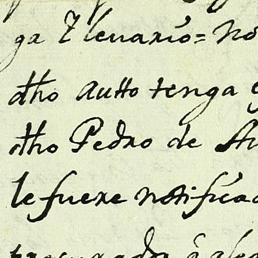 ga Plenario = No
dho autto tenga
dho Pedro de Au
le fuere notifica
procurador o